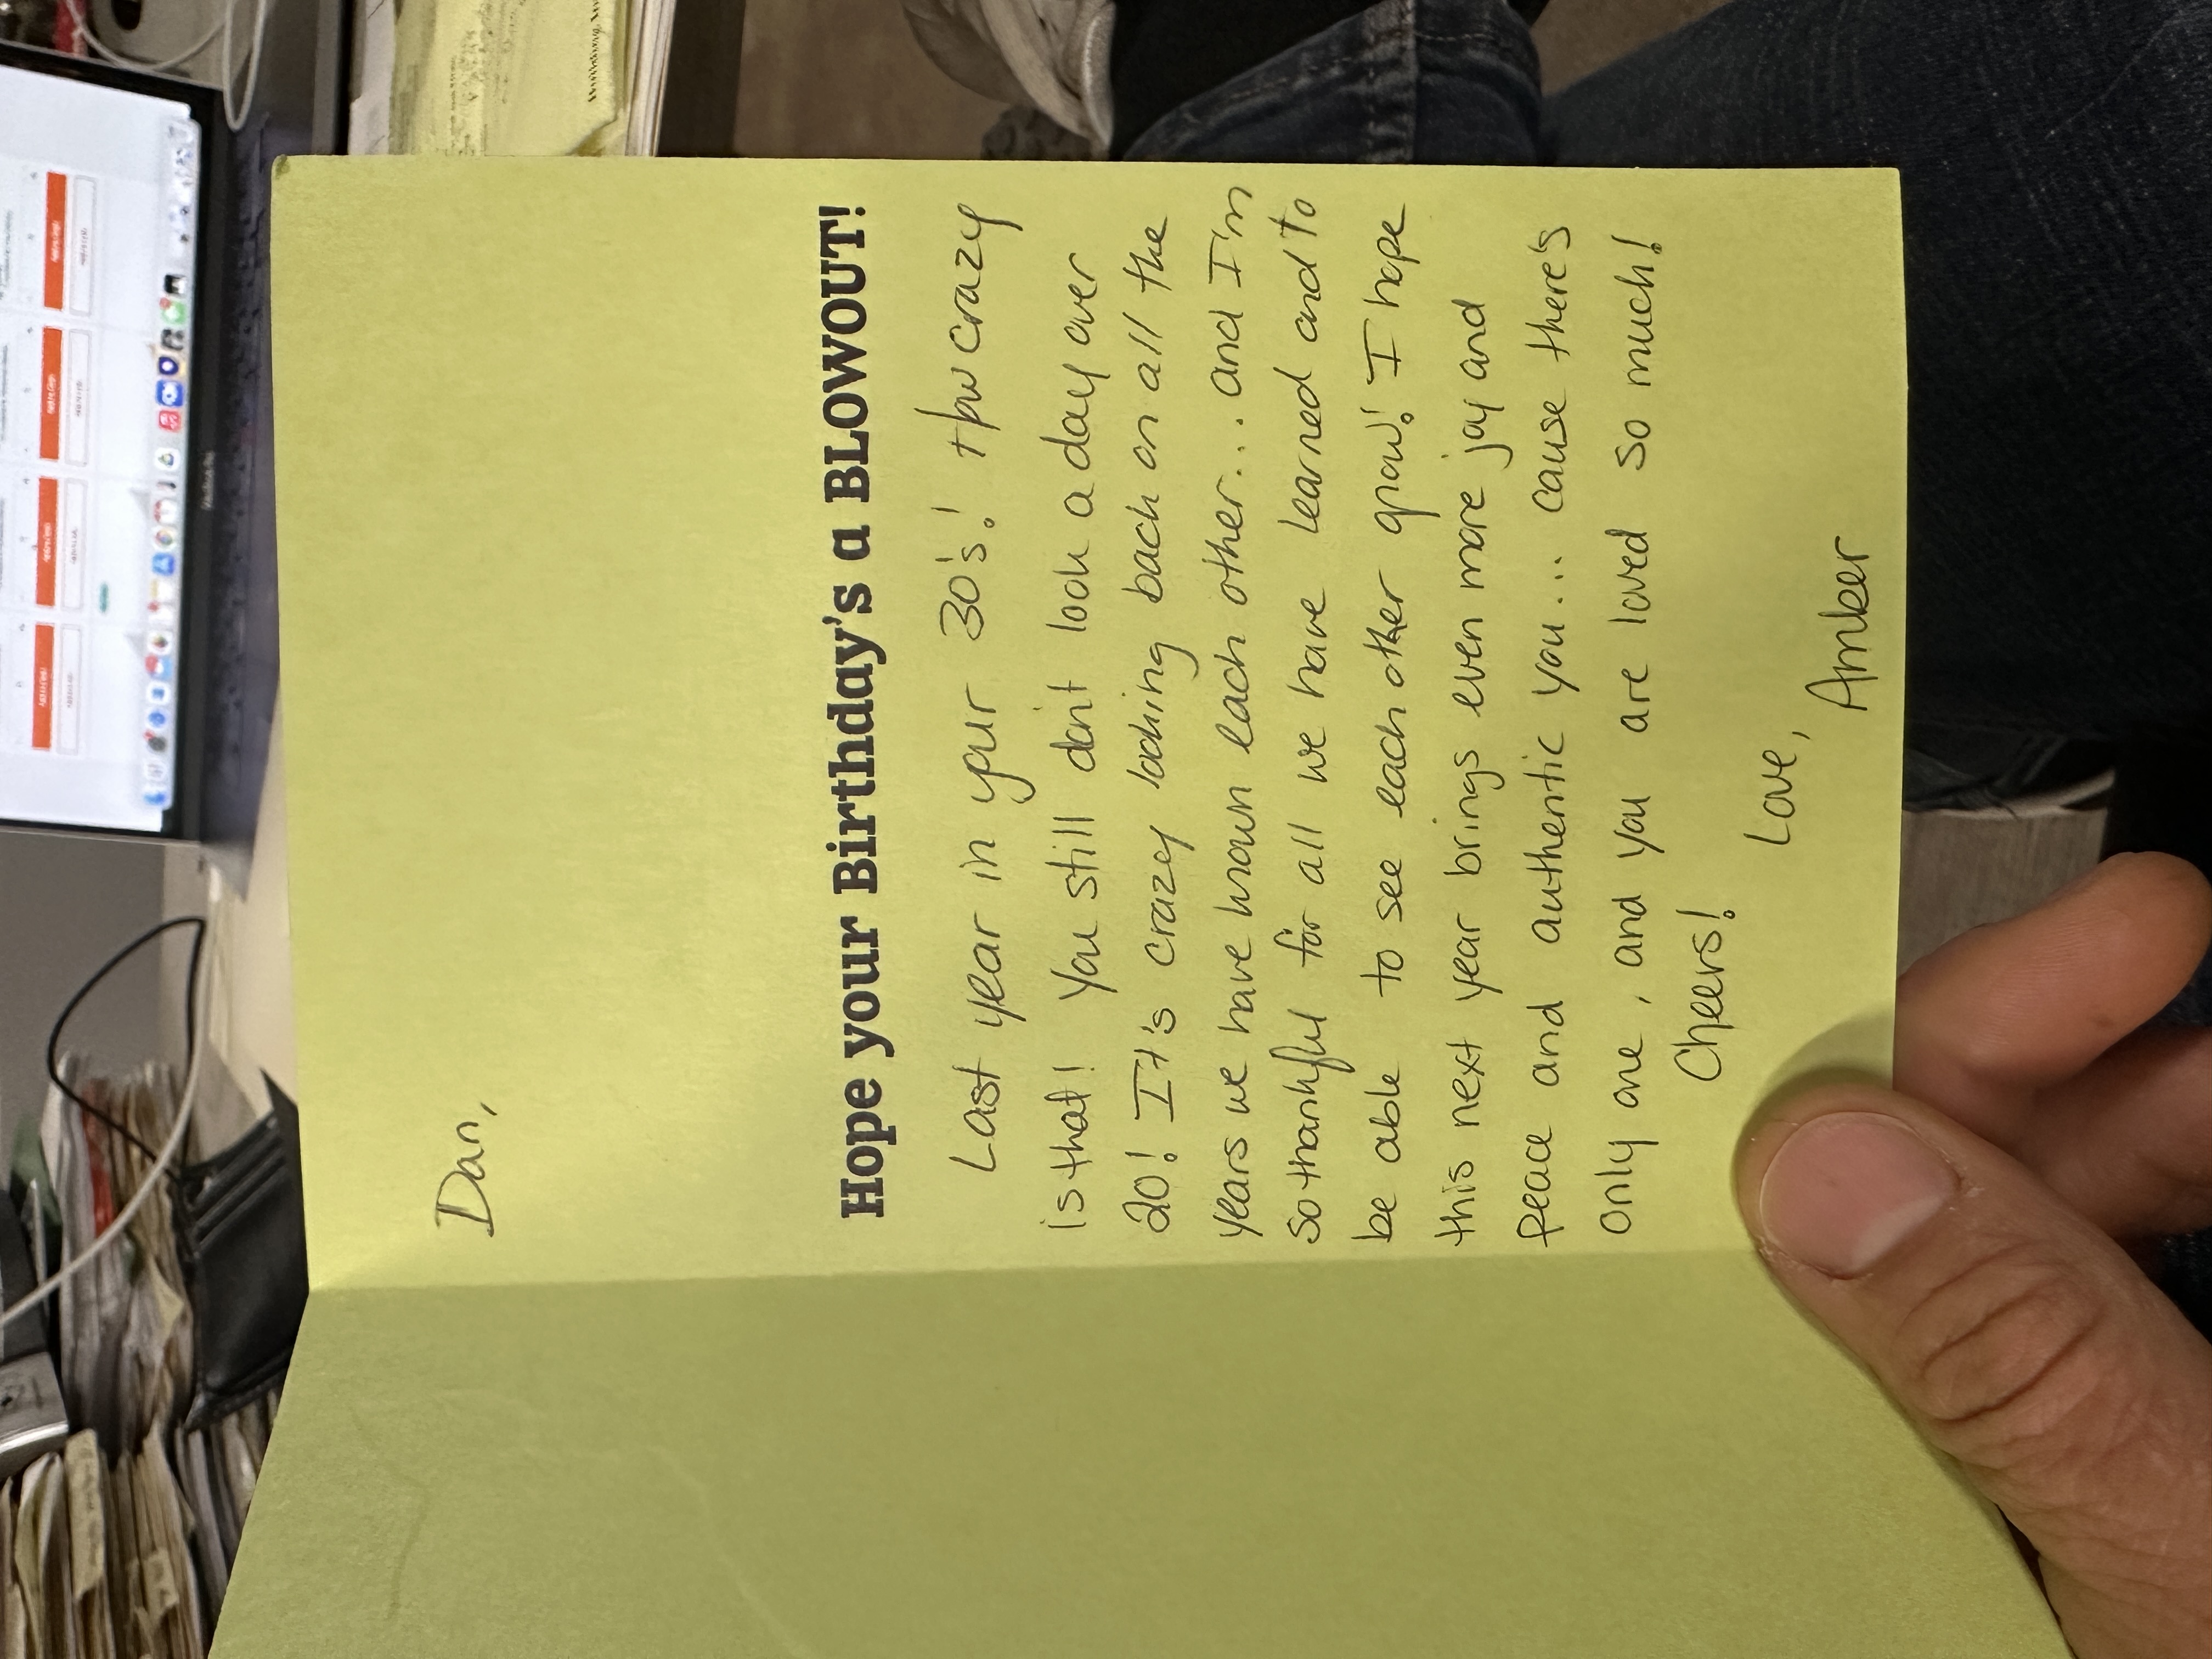 Dan,
Hope your Birthday's a BLOWOUT!
Last year in your 30's! How crazy
is that! You still don't look a day over
20! It's crazy looking back on all the
years we have known each other... and I'm
so thankful for all we have learned and to
be able to see each other grow! I hope
this next year brings even more joy and
peace and authentic you... cause there's
only one, and you are loved so much!
Cheers!
Love,
Amber